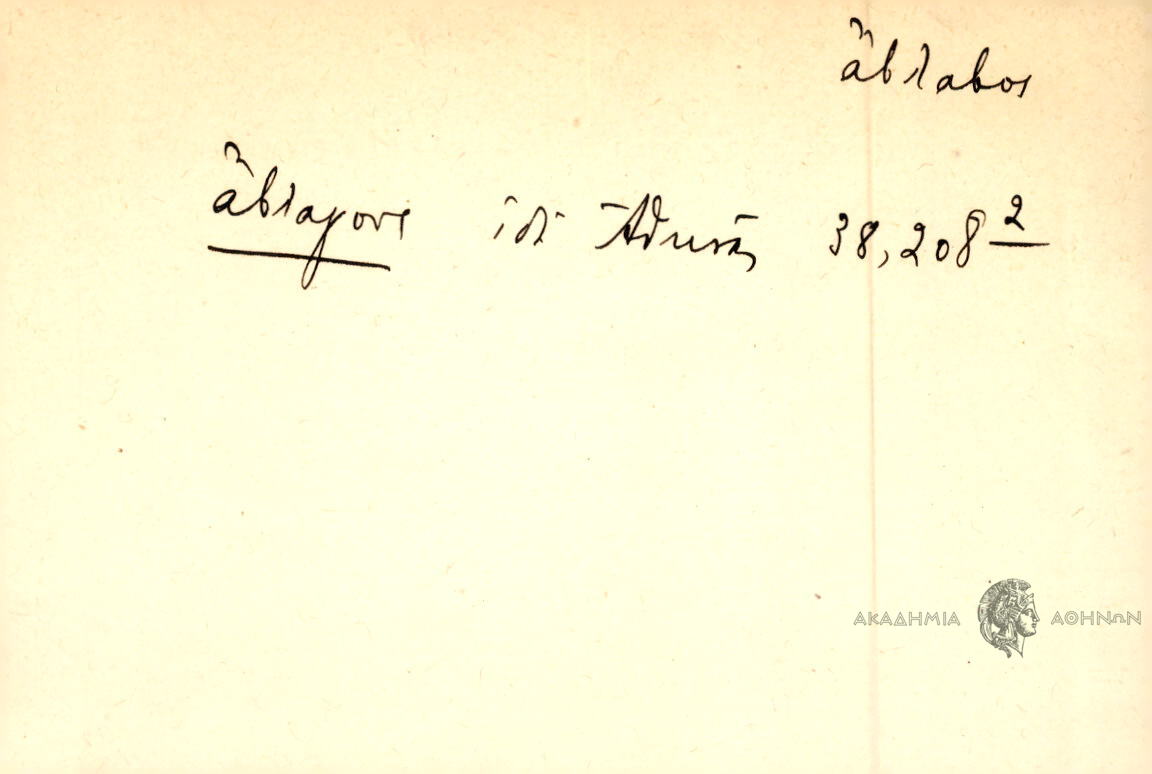 ἄβλαβος
ἄβλαγους ἰδὲ Ἀθηνᾶς 38, 208 2
ΑΚΑΔΗΜΙΑ ΑΘΗΝΩΝ